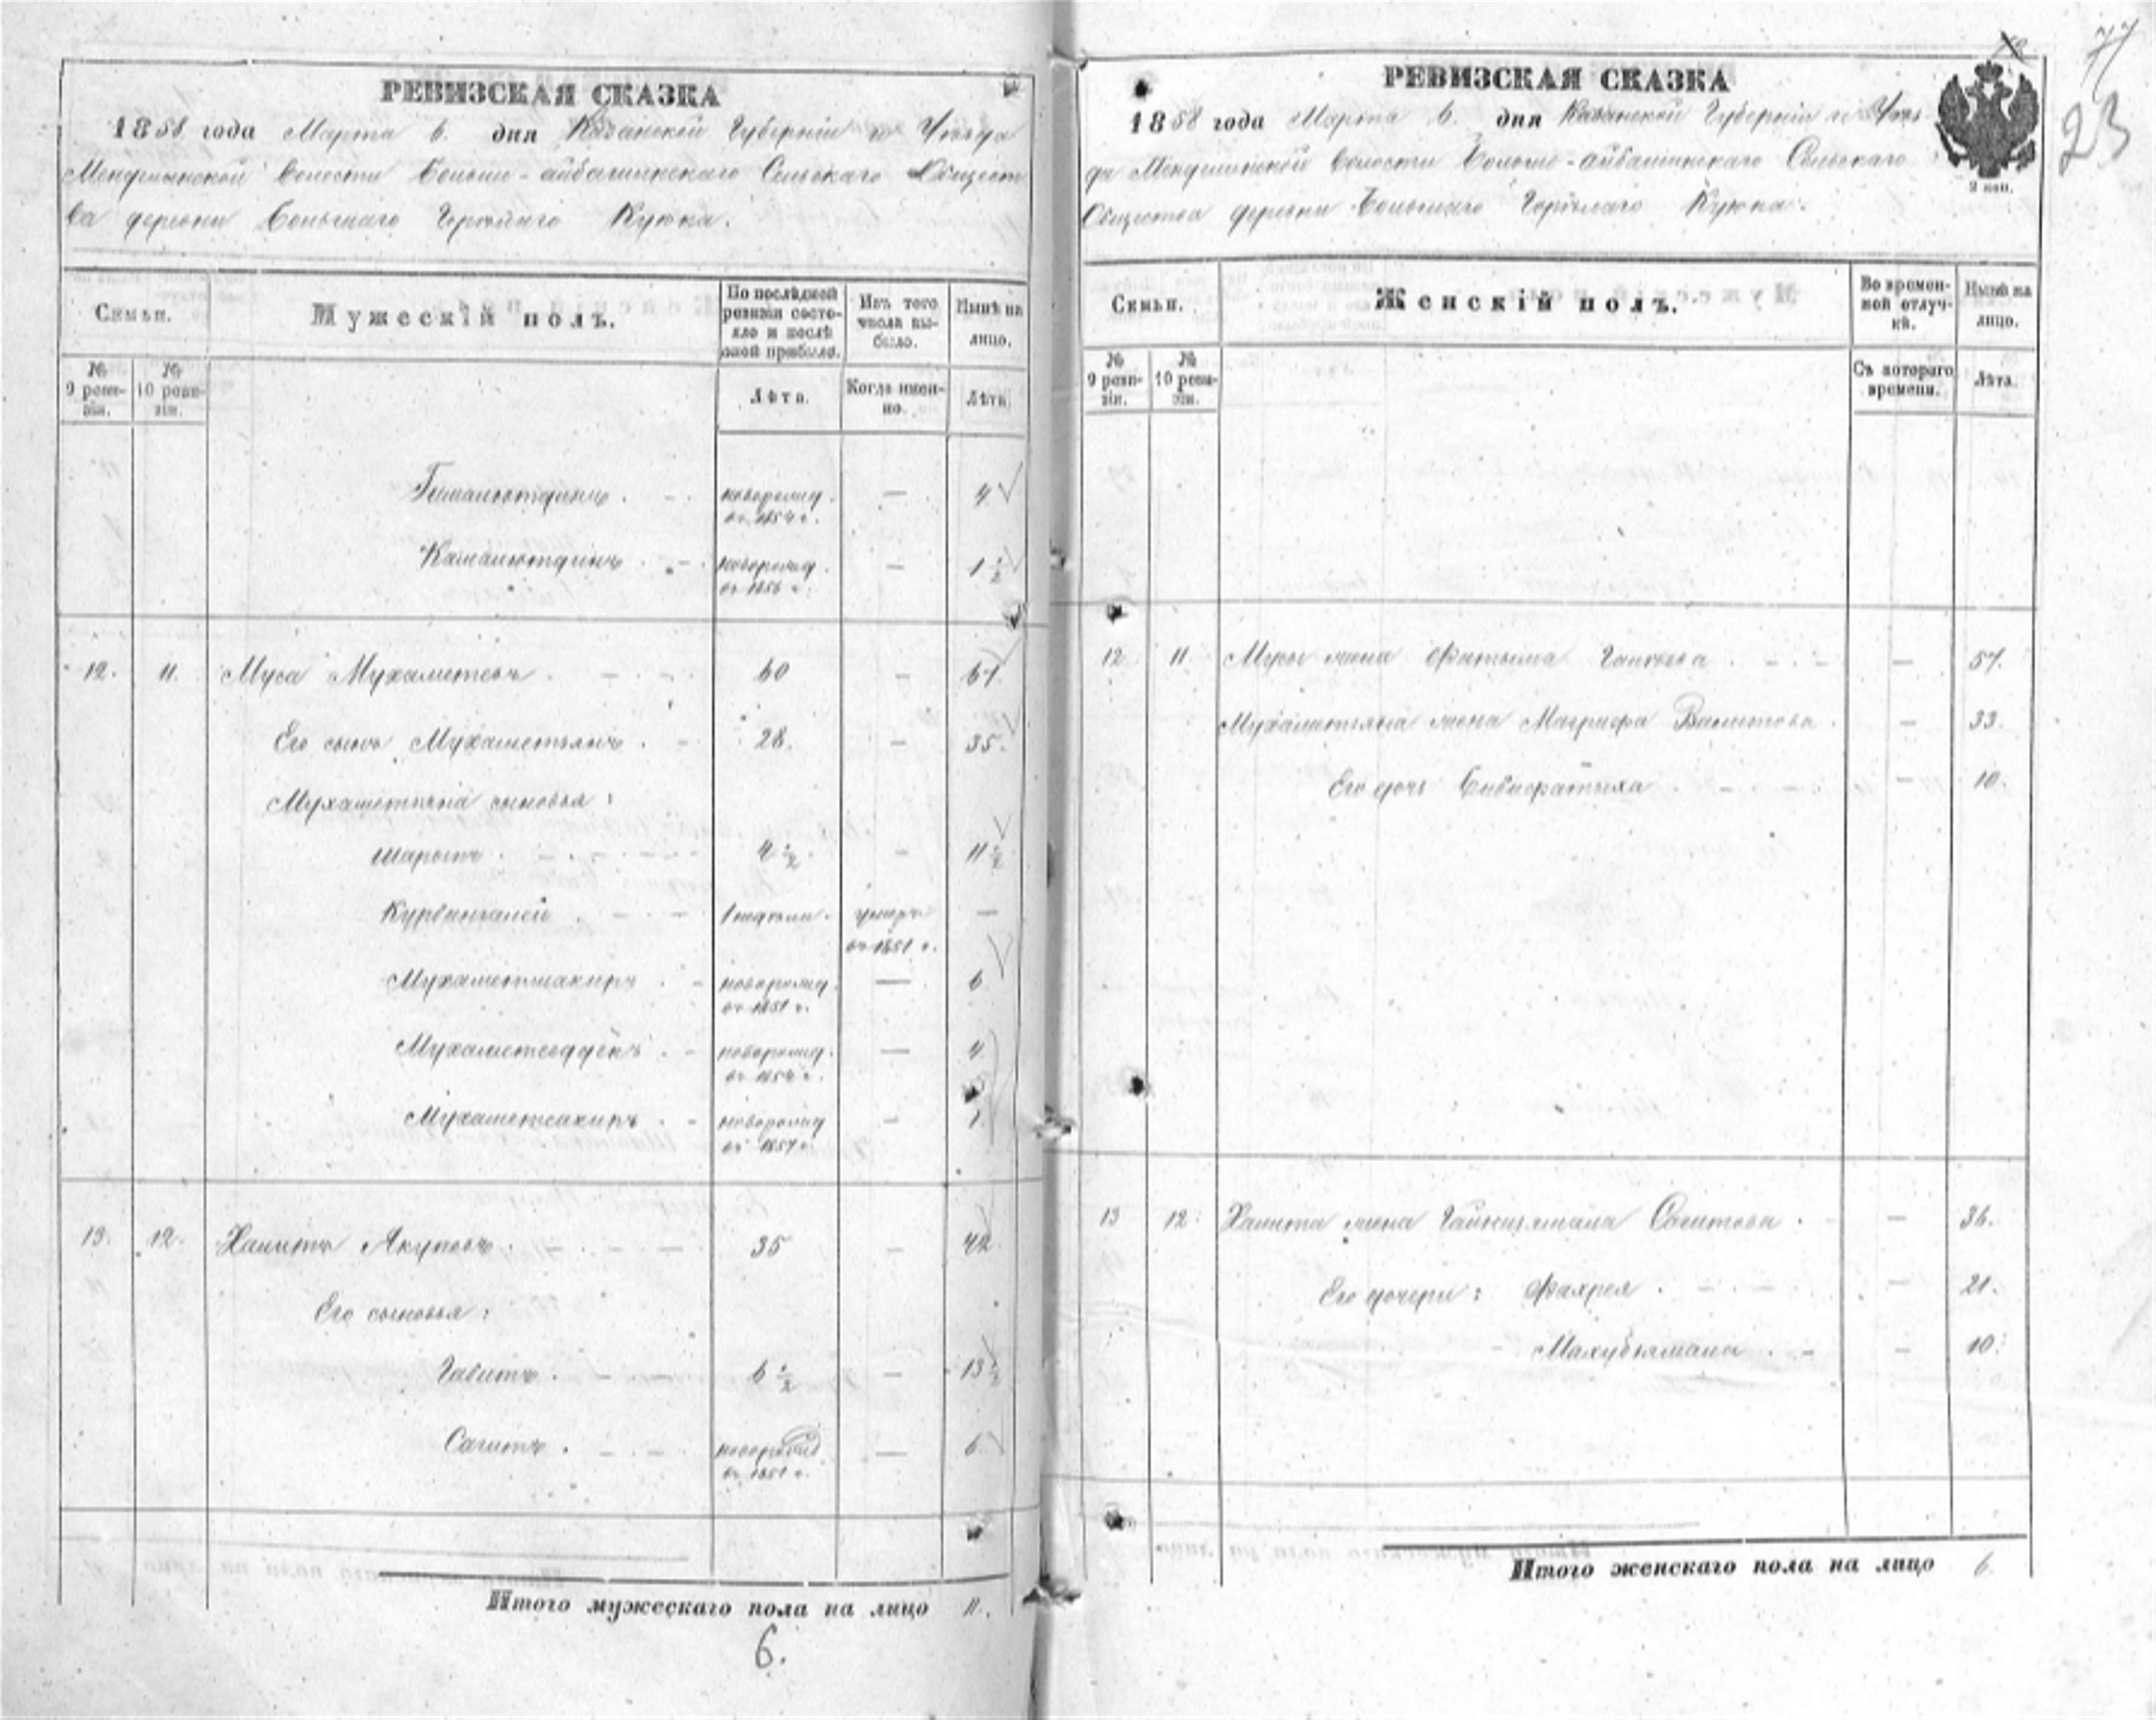 РЕВИЗСКАЯ СКАЗКА
1858 года Марта 6. дня Казанской Губерніи и Уѣзда
Менделинской волости Больше-айбашинскаго Сельскаго Общест
ва деревни Большаго Горѣлаго Куюка.
Семьи.
Мужескій полъ.
По послѣдней ревизіи состояло и послѣ оной прибыло.
Изъ того числа выбыло.
Нынѣ на лицо.
№ 9 ревизіи.
№ 10 ревизіи.
Лѣта.
Когда именно.
Лѣта.
новорожд. — 4
въ 1854 г.
Камалютдинъ новорожд. — 1 1/2
въ 1856 г.
12. 11. Муса Мухаметевъ 60 — 67.
Его сынъ Мухаметьянъ 28. — 35.
Мухаметьяна сыновья:
Шарыпъ 4 1/2 — 11 1/2
Курбангалей умеръ —
въ 1851 г.
Мухаметшакиръ новорожд. — 6
въ 1851 г.
новорожд. — 4
въ 1854 г.
Мухаметсакиръ новорожд — 1.
въ 1857 г.
13. 12. Хамитъ Якуповъ 35 — 42.
Его сыновья:
Габитъ 6 1/2 — 13 1/2
Сагитъ новорожд — 6.
въ 1851 г.
Итого мужескаго пола на лицо 11.
6.
77
23
РЕВИЗСКАЯ СКАЗКА
2 коп.
1858 года Марта 6. дня Казанской Губерніи и Уѣз
да Менделинской волости Больше-айбашинскаго Сельскаго
Общества деревни Большаго Горѣлаго Куюка.
Семьи.
Женскій полъ.
Во временной отлучкѣ.
Нынѣ на лицо.
№ 9 ревизіи.
№ 10 ревизіи.
Съ котораго времени.
Лѣта.
12 11. Мусы жена Фатыма — 57.
Мухаметьяна жена Магрифа Валитова — 33.
Его дочь Бибифатыха — 10.
13 12. Хамита жена Сагитова — 36.
Его дочери: Фахрея — 21.
— 10.
Итого женскаго пола на лицо 6.